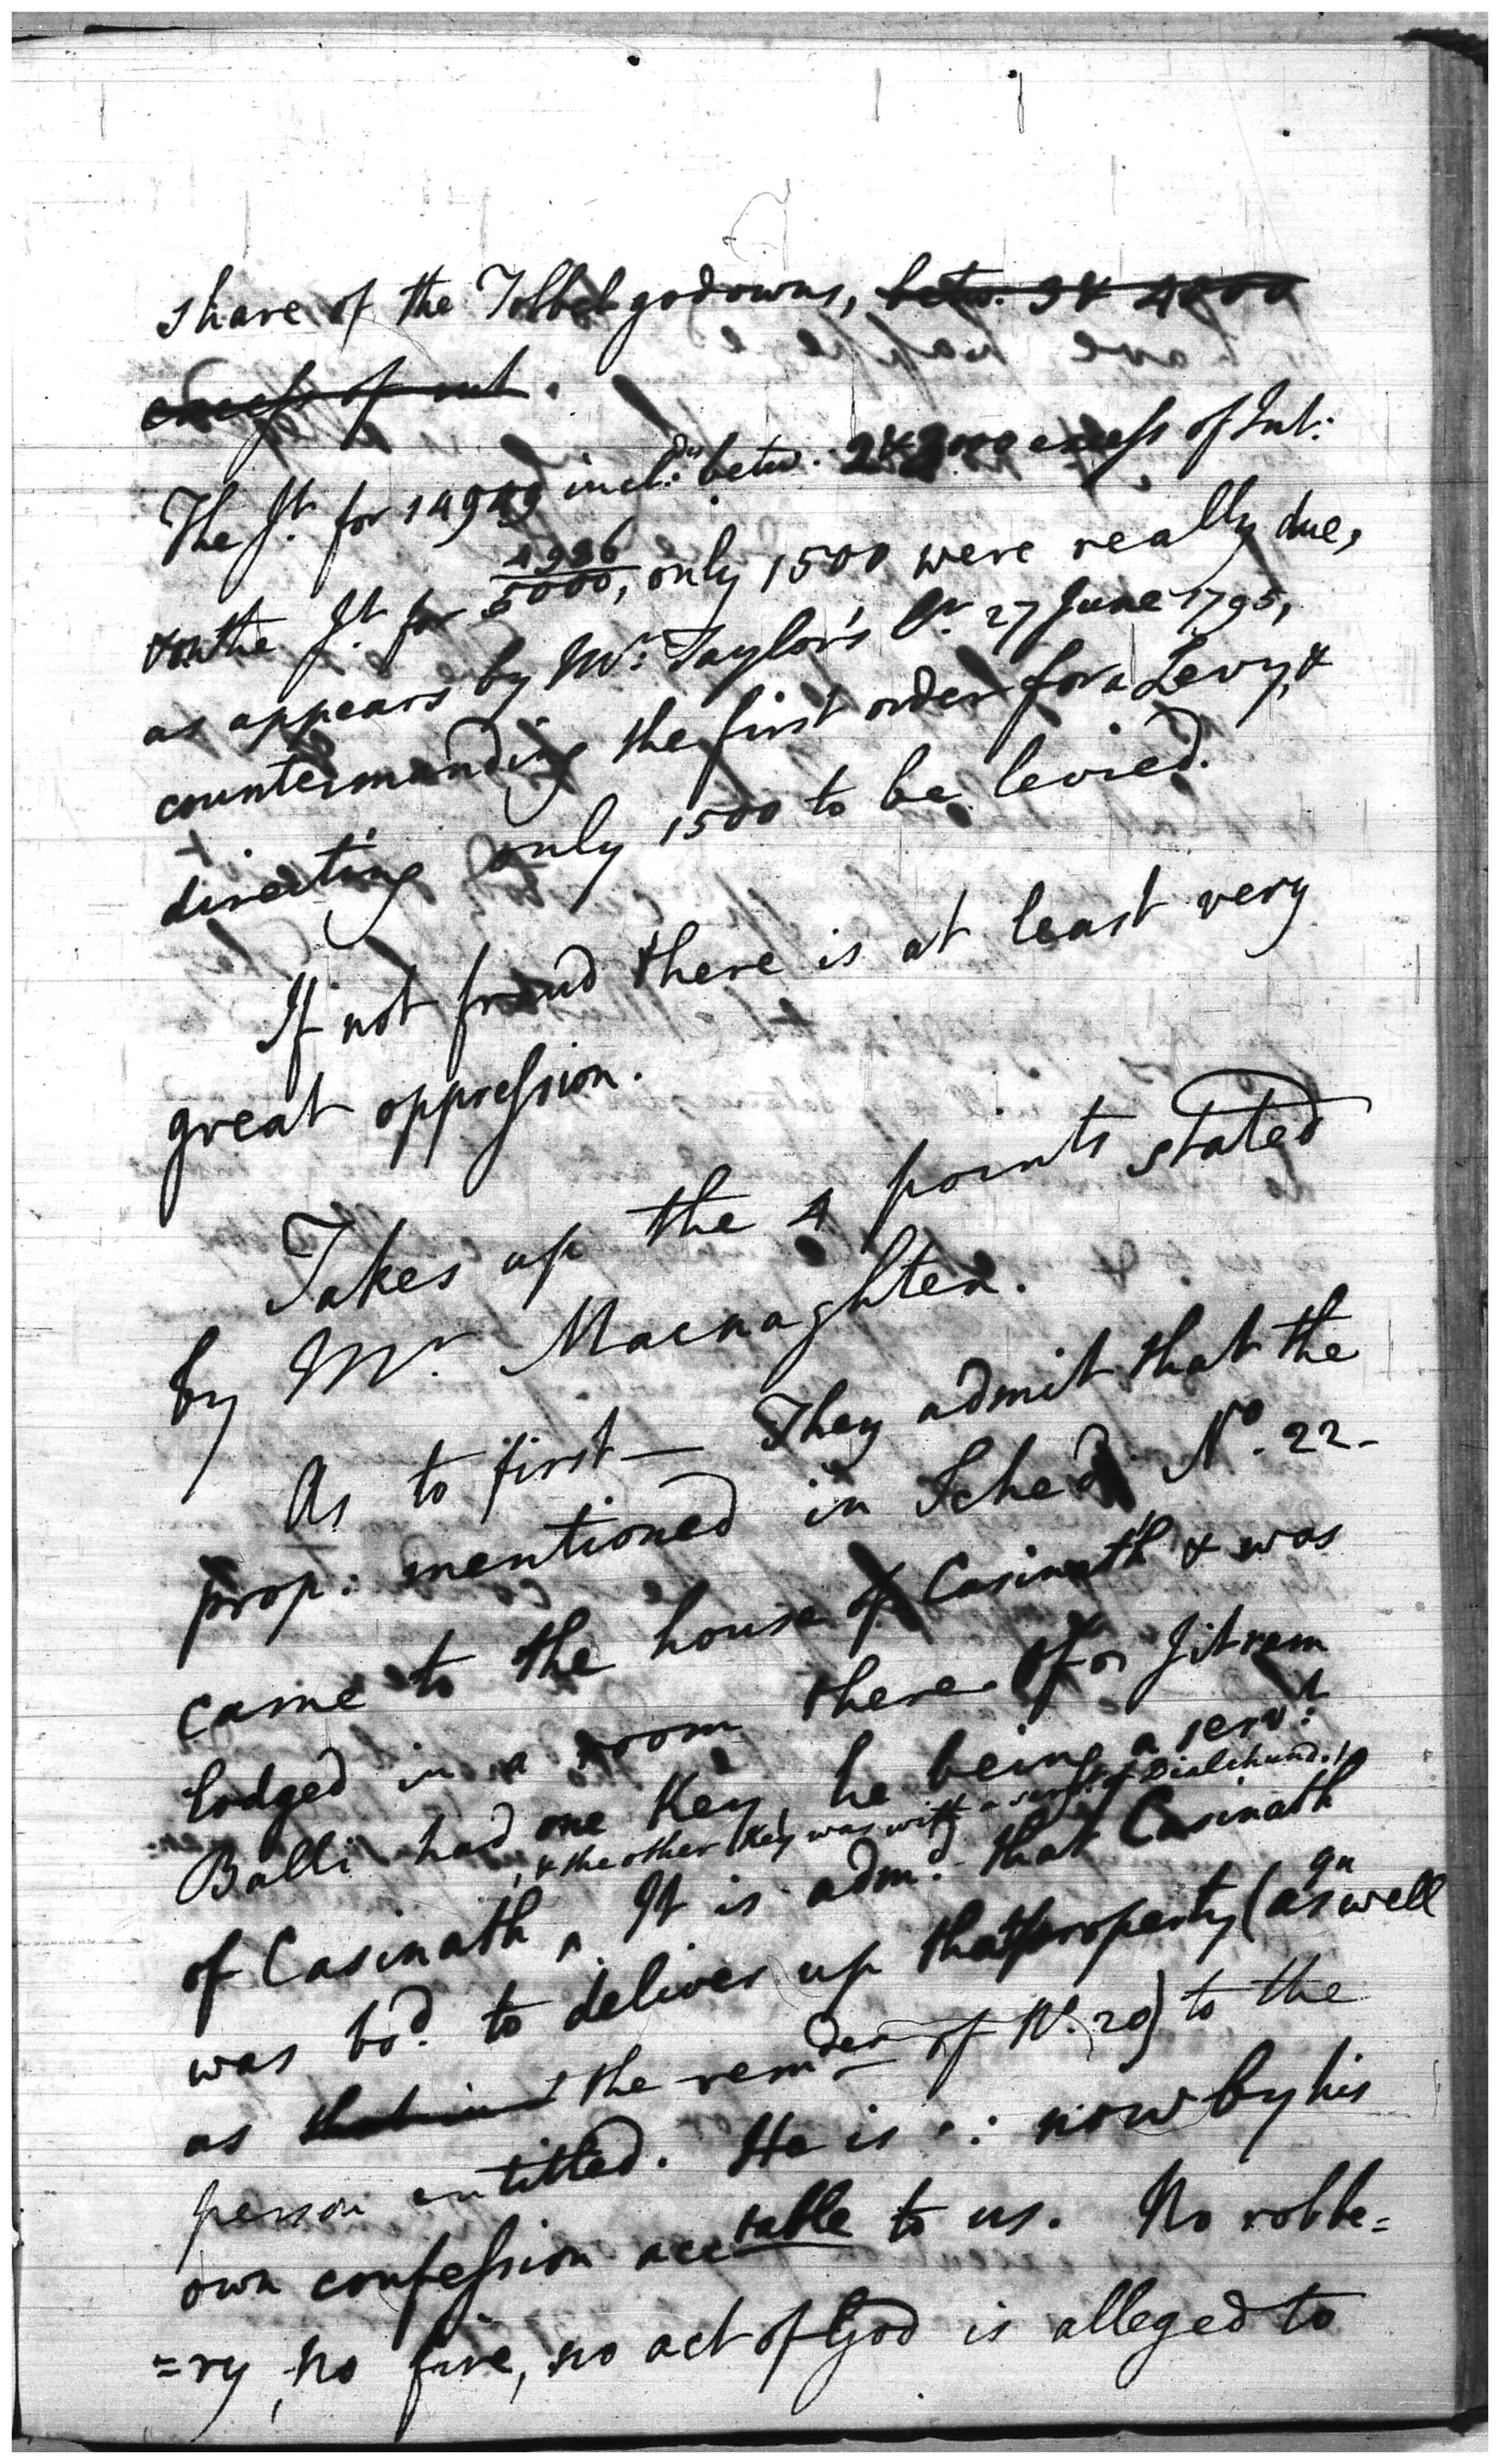 share of the godowns, betw. 3 & 4000
excess of int.
The Jt. for 14949 incl:ds betw. 2 & 3000 excess of Int:
& on the Jt. for 4986 5000, only 1500 were really due,
as appears by Mr: Taylor's Or. 27 June 1795,
countermanding the first order for a Levy, &
directing only 1500 to be levied.
If not fraud there is at least very
great oppression.
Takes up the 4 points stated
by Mr. Macnaghten.
As to first — They admit that the
prop: mentioned in Sched No. 22-
came to the house of Casinath & was
lodged in a room there of wch Jitram
Balli had one Key, he being a serv:t
, & the other Key was with a servt. of Dialchund.
of Casinath ^. It is adm:d that Casinath
was bd. to deliver up that property (qu as well
as that in the remder of N. 20) to the
person entitled. He is ∴ now by his
own confession acctable to us. No robbe=
=ry, no fire, no act of God is alleged to